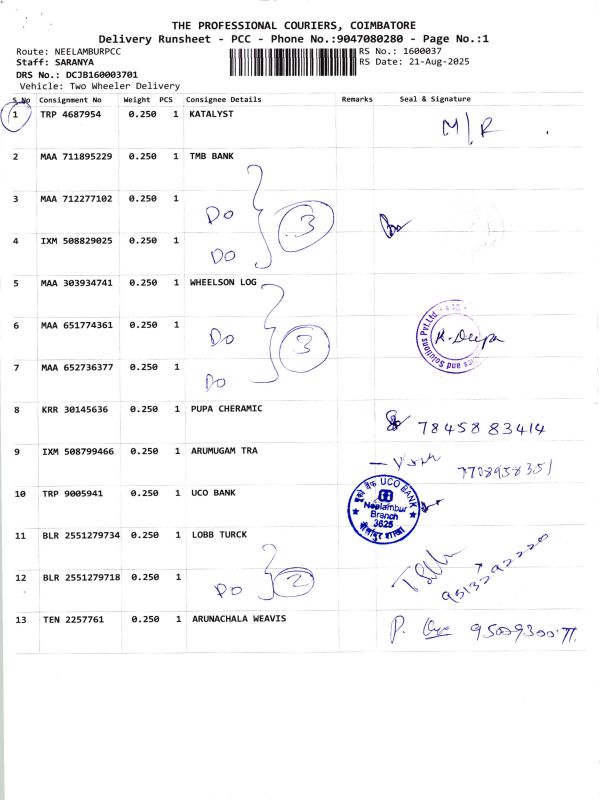 THE PROFESSIONAL COURIERS, COIMBATORE
Delivery Runsheet - PCC - Phone No.:9047080280 - Page No.:1
Route: NEELAMBURPCC RS No.: 1600037
Staff: SARANYA RS Date: 21-Aug-2025
DRS No.: DCJB160003701
Vehicle: Two Wheeler Delivery
S.No Consignment No Weight PCS Consignee Details Remarks Seal & Signature
1 TRP 4687954 0.250 1 KATALYST M/R
2 MAA 711895229 0.250 1 TMB BANK
3 MAA 712277102 0.250 1 Do 3
4 IXM 508829025 0.250 1 Do
5 MAA 303934741 0.250 1 WHEELSON LOG
6 MAA 651774361 0.250 1 Do 3 K. Deepa
7 MAA 652736377 0.250 1 Do
8 KRR 30145636 0.250 1 PUPA CHERAMIC 78458 83414
9 IXM 508799466 0.250 1 ARUMUGAM TRA 7708958351
10 TRP 9005941 0.250 1 UCO BANK
यूको बैंक UCO BANK
Neelambur
Branch
3625
11 BLR 2551279734 0.250 1 LOBB TURCK
12 BLR 2551279718 0.250 1 Do 2
13 TEN 2257761 0.250 1 ARUNACHALA WEAVIS P.